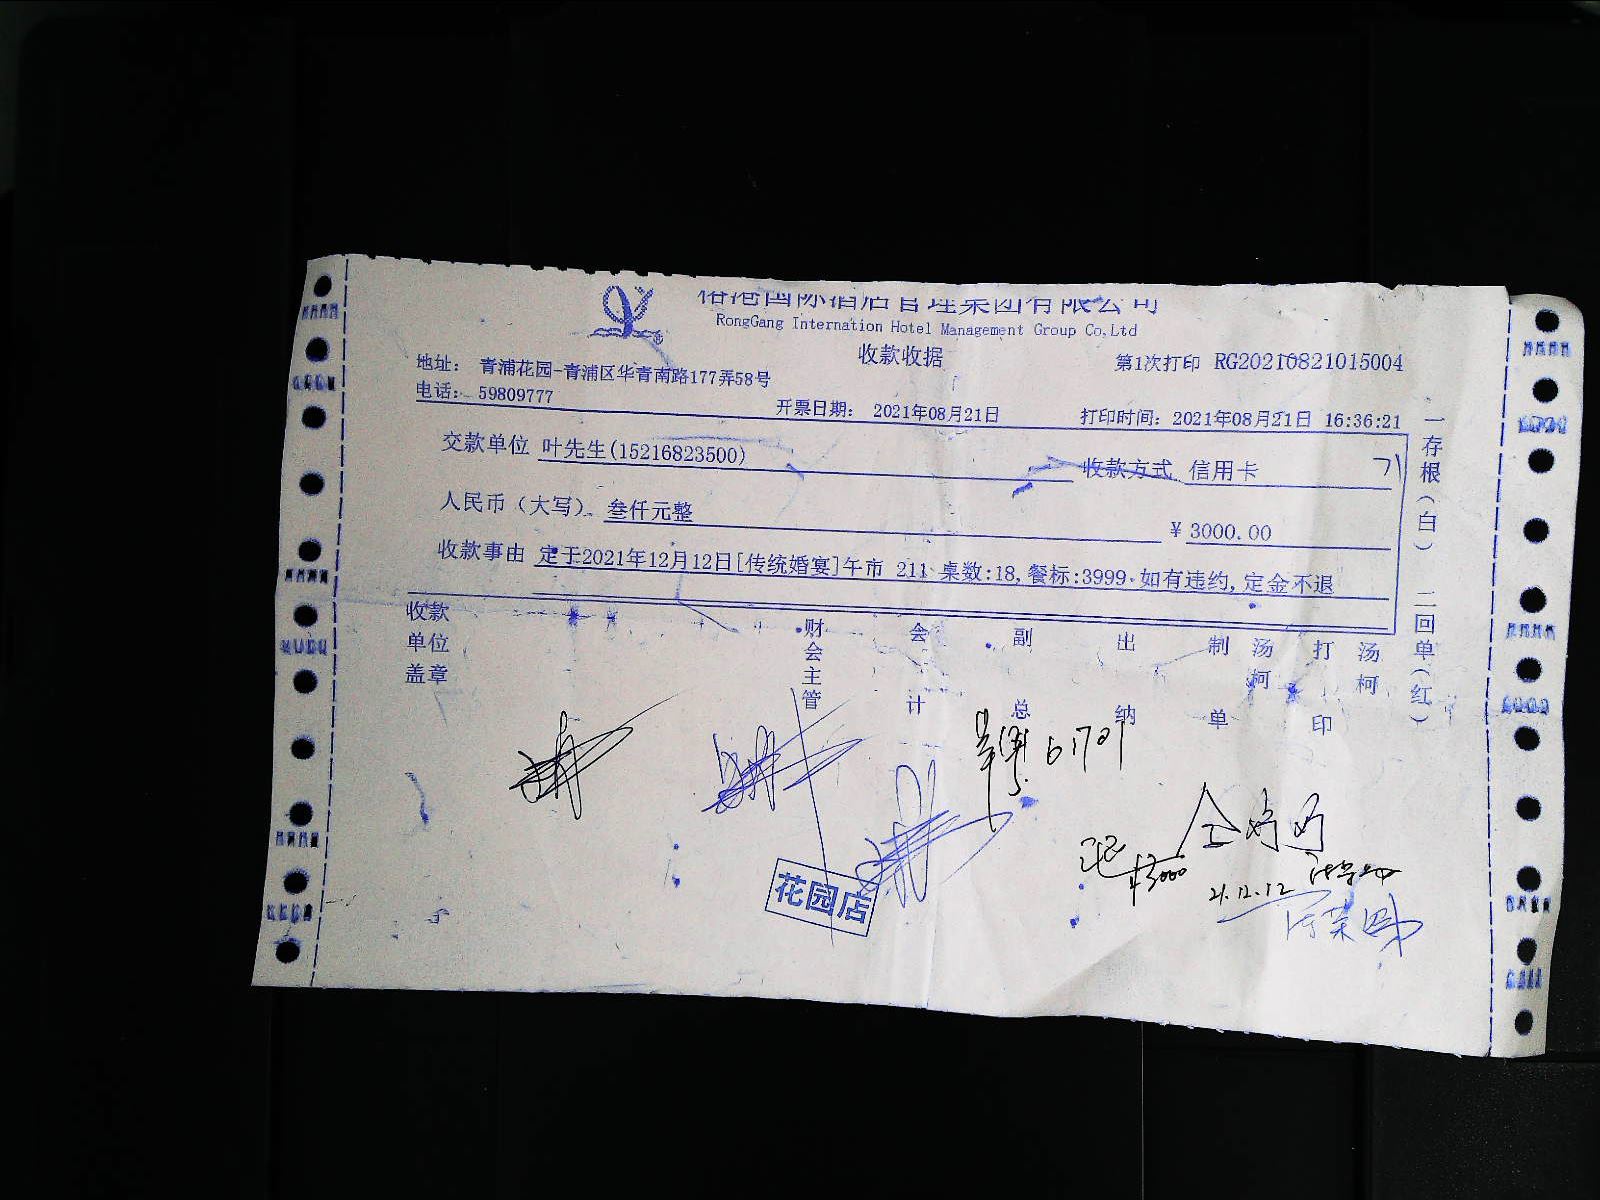 榕港国际酒店管理集团有限公司
RongGang Internation Hotel Management Group Co,Ltd
收款收据
第1次打印 RG20210821015004
地址： 青浦花园-青浦区华青南路177弄58号
电话： 59809777
开票日期： 2021年08月21日
打印时间：2021年08月21日 16:36:21
交款单位 叶先生(15216823500)
收款方式 信用卡
人民币（大写） 叁仟元整
¥ 3000.00
收款事由 定于2021年12月12日[传统婚宴]午市 211 桌数:18,餐标:3999·如有违约,定金不退
一存根（白） 二回单（红）
收款单位盖章
财会主管
会计
副总
出纳
制单
汤柯
打印
汤柯
花园店
¥3000
21.12.12